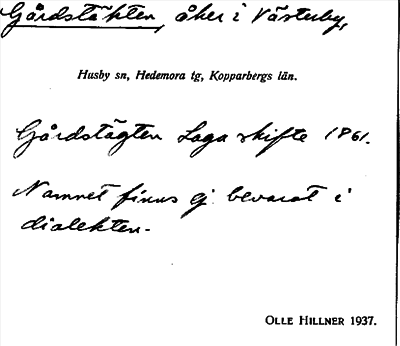 Gårdstäkten, åker i Västerby,
Husby sn, Hedemora tg, Kopparbergs län.
Gårdstägten Laga skifte 1861.
Namnet finns ej bevarat i
dialekten.
OLLE HILLNER 1937.